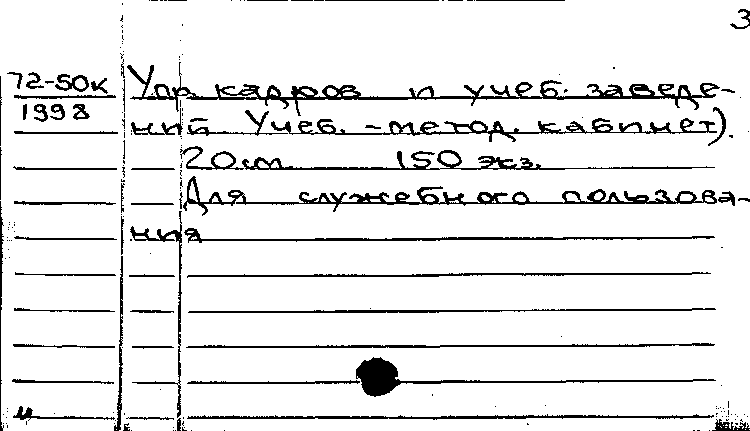 3
72-50к Упр. кадров и учеб. заведе-
1998 ний Учеб.-метод. кабинет).
20 см 150 экз.
Для служебного пользова-
ния
и